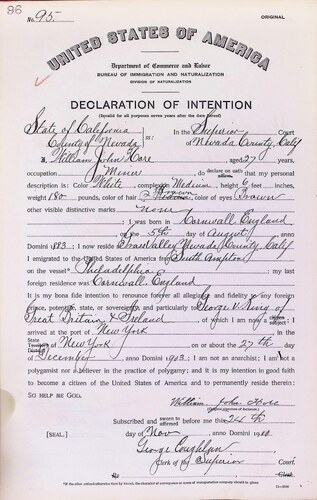 96
No. 95
ORIGINAL
UNITED STATES OF AMERICA
Department of Commerce and Labor
BUREAU OF IMMIGRATION AND NATURALIZATION
DIVISION OF NATURALIZATION
DECLARATION OF INTENTION
(Invalid for all purposes seven years after the date hereof)
State of California
County of Nevada ss:
In the Superior Court
of Nevada County, Calif
I, William John Hore, aged 27 years,
occupation Miner, do declare on oath that my personal
description is: Color White, complexion Medium, height 6 feet inches,
weight 180 pounds, color of hair Brown, color of eyes Brown
other visible distinctive marks none
I was born in Cornwall England
on the 5th day of August, anno
Domini 1883; I now reside Grass Valley, Nevada County Calif
I emigrated to the United States of America from South Ampton
on the vessel Philadelphia; my last
foreign residence was Cornwall England
It is my bona fide intention to renounce forever all allegiance and fidelity to any foreign
prince, potentate, state, or sovereignty, and particularly to George V King of
Great Britain & Ireland, of which I am now a subject; I
arrived at the port of New York, in the
State of New York on or about the 27th day
of December, anno Domini 1903; I am not an anarchist; I am not a
polygamist nor a believer in the practice of polygamy; and it is my intention in good faith
to become a citizen of the United States of America and to permanently reside therein:
SO HELP ME GOD.
William John Hore
(Original signature of declarant.)
Subscribed and sworn to before me this 26th
[SEAL.] day of Nov, anno Domini 1910
George Coughlan
Clerk of the Superior Court